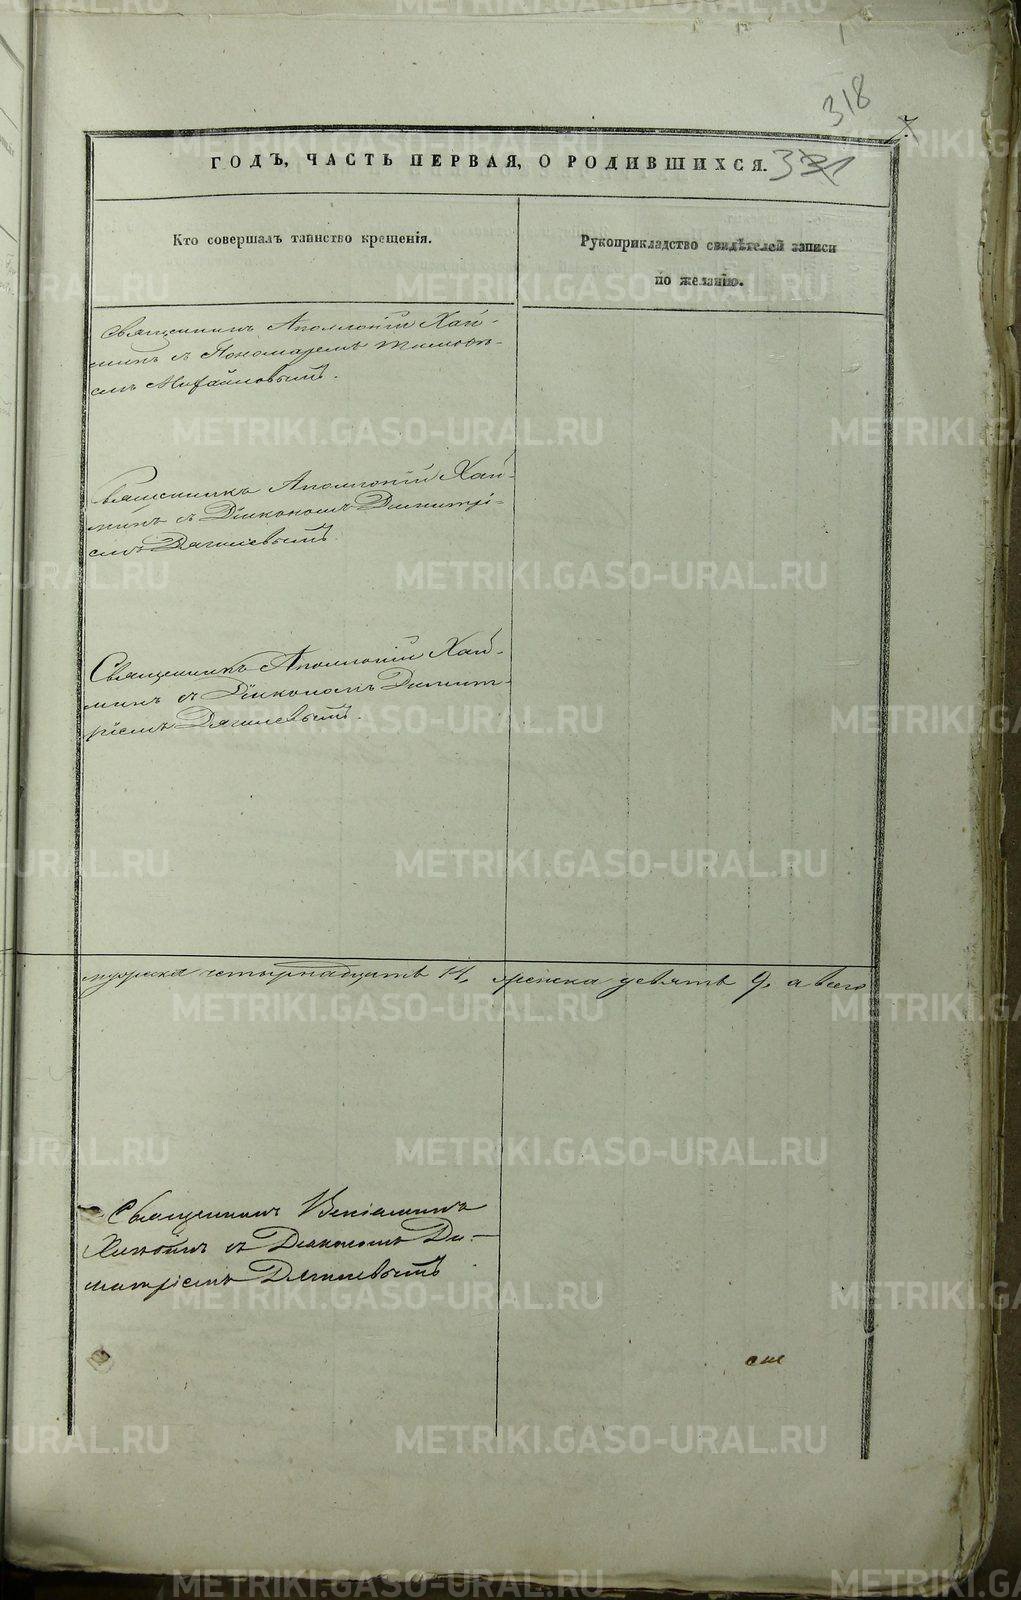 318
7.
ГОДЪ, ЧАСТЬ ПЕРВАЯ, О РОДИВШИХСЯ.
321
Кто совершалъ таинство крещенія.
Рукоприкладство свидѣтелей записи
по желанію.
Священникъ Аполлоній Хай-
минъ съ Пономаремъ
Михайловымъ.
Священникъ Аполлоній Хай-
минъ съ Діакономъ Димитрі-
емъ Дягилевымъ
Священникъ Аполлоній Хай-
минъ съ Діакономъ Димит-
ріемъ Дягилевымъ.
мужеска четырнадцать 14, женска девять 9, а всего
Священникъ Веніаминъ
съ Діакономъ Ди-
митріемъ Дягилевымъ
METRIKI.GASO-URAL.RU